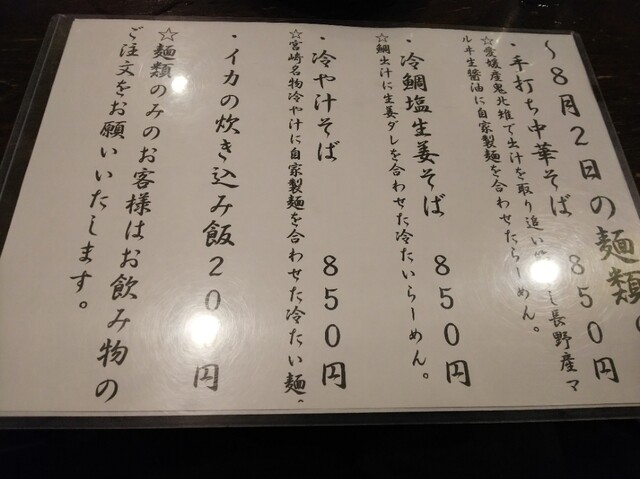 〜8月2日の麺類
・手打ち中華そば 850円
☆愛媛産鬼北雉で出汁を取り追い し長野産マ
ルキ生醤油に自家製麺を合わせたらーめん。
・冷鯛塩生姜そば 850円
☆鯛出汁に生姜ダレを合わせた冷たいらーめん。
・冷や汁そば 850円
☆宮崎名物冷や汁に自家製麺を合わせた冷たい麺。
・イカの炊き込み飯20 円
☆麺類のみのお客様はお飲み物の
ご注文をお願いいたします。